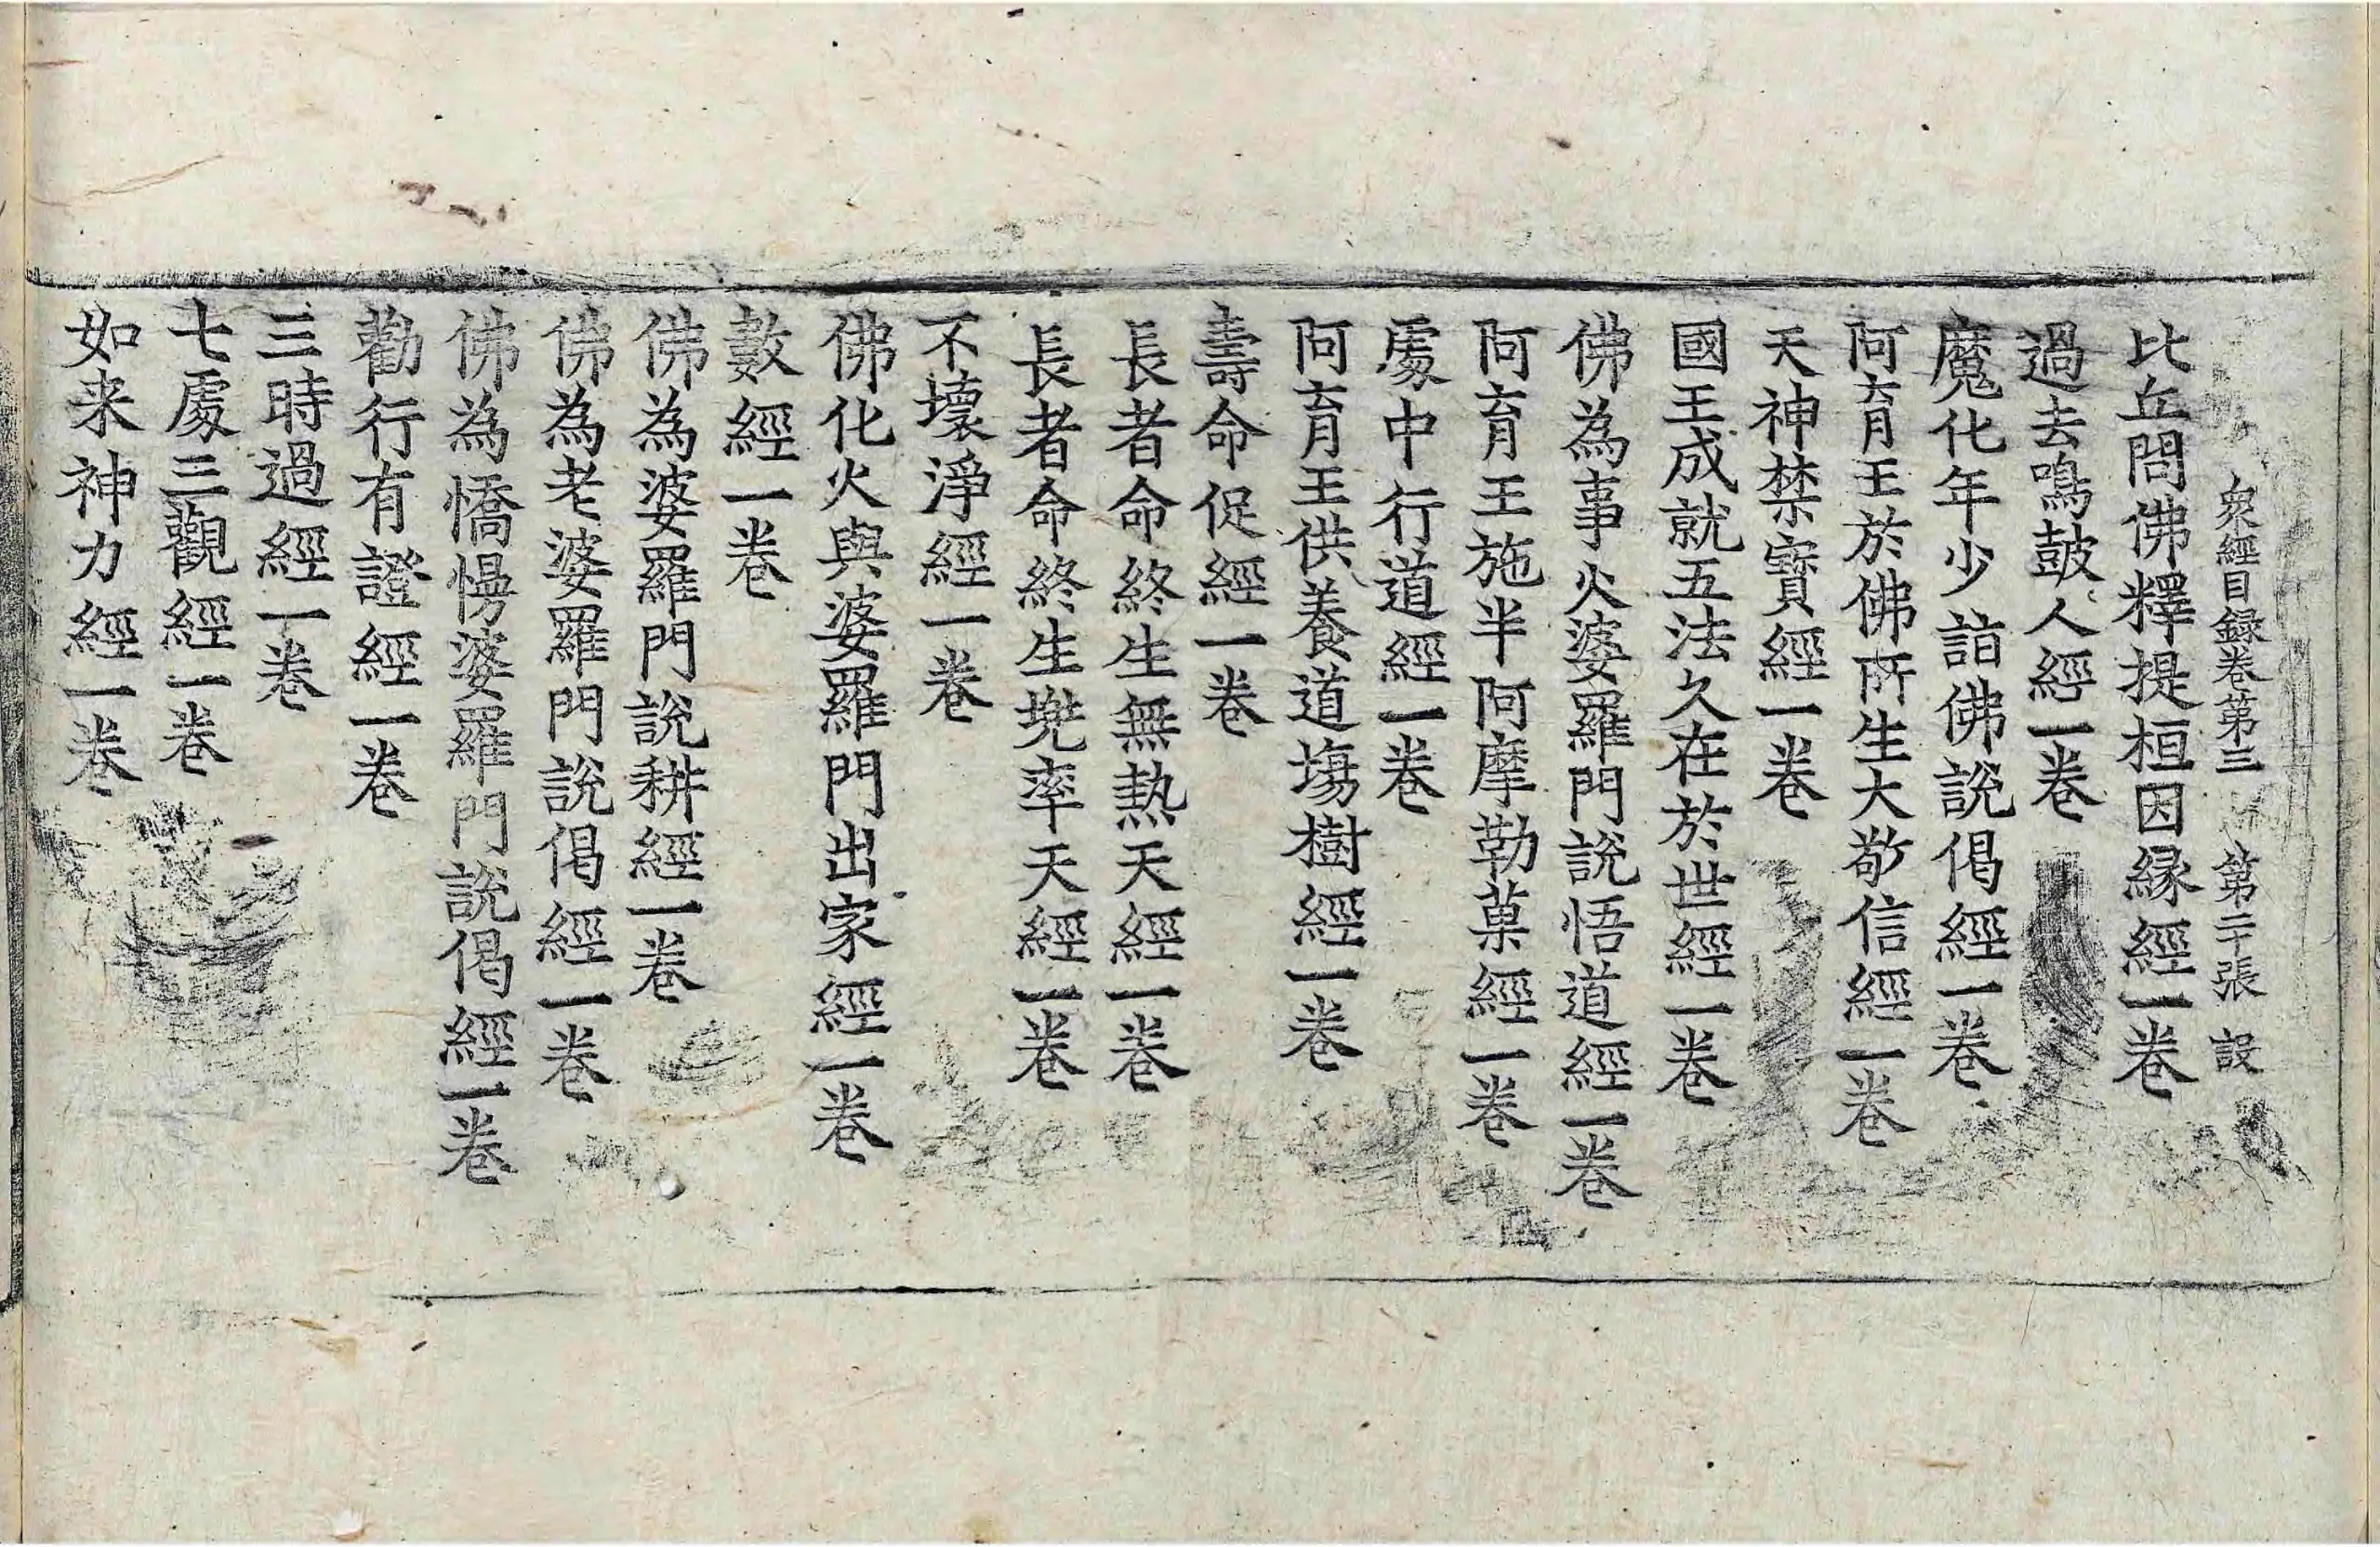 衆經目録卷第三 第二十張 設
比丘問佛釋提桓因縁經一卷
過去鳴皷人經一卷
魔化年少詣佛說偈經一卷
阿育王於佛所生大敬信經一卷
天神禁寳經一卷
國王成就五法久在於世經一卷
佛為事火婆羅門說悟道經一卷
阿育王施半阿摩勒菓經一卷
處中行道經一卷
阿育王供養道塲樹經一卷
壽命促經一卷
長者命終生無熱天經一卷
長者命終生兠率天經一卷
不壞淨經一卷
佛化火與婆羅門出家經一卷
數經一卷
佛為婆羅門說耕經一卷
佛為老婆羅門說偈經一卷
佛為憍慢婆羅門說偈經一卷
勸行有證經一卷
三時過經一卷
七處三觀經一卷
如来神力經一卷